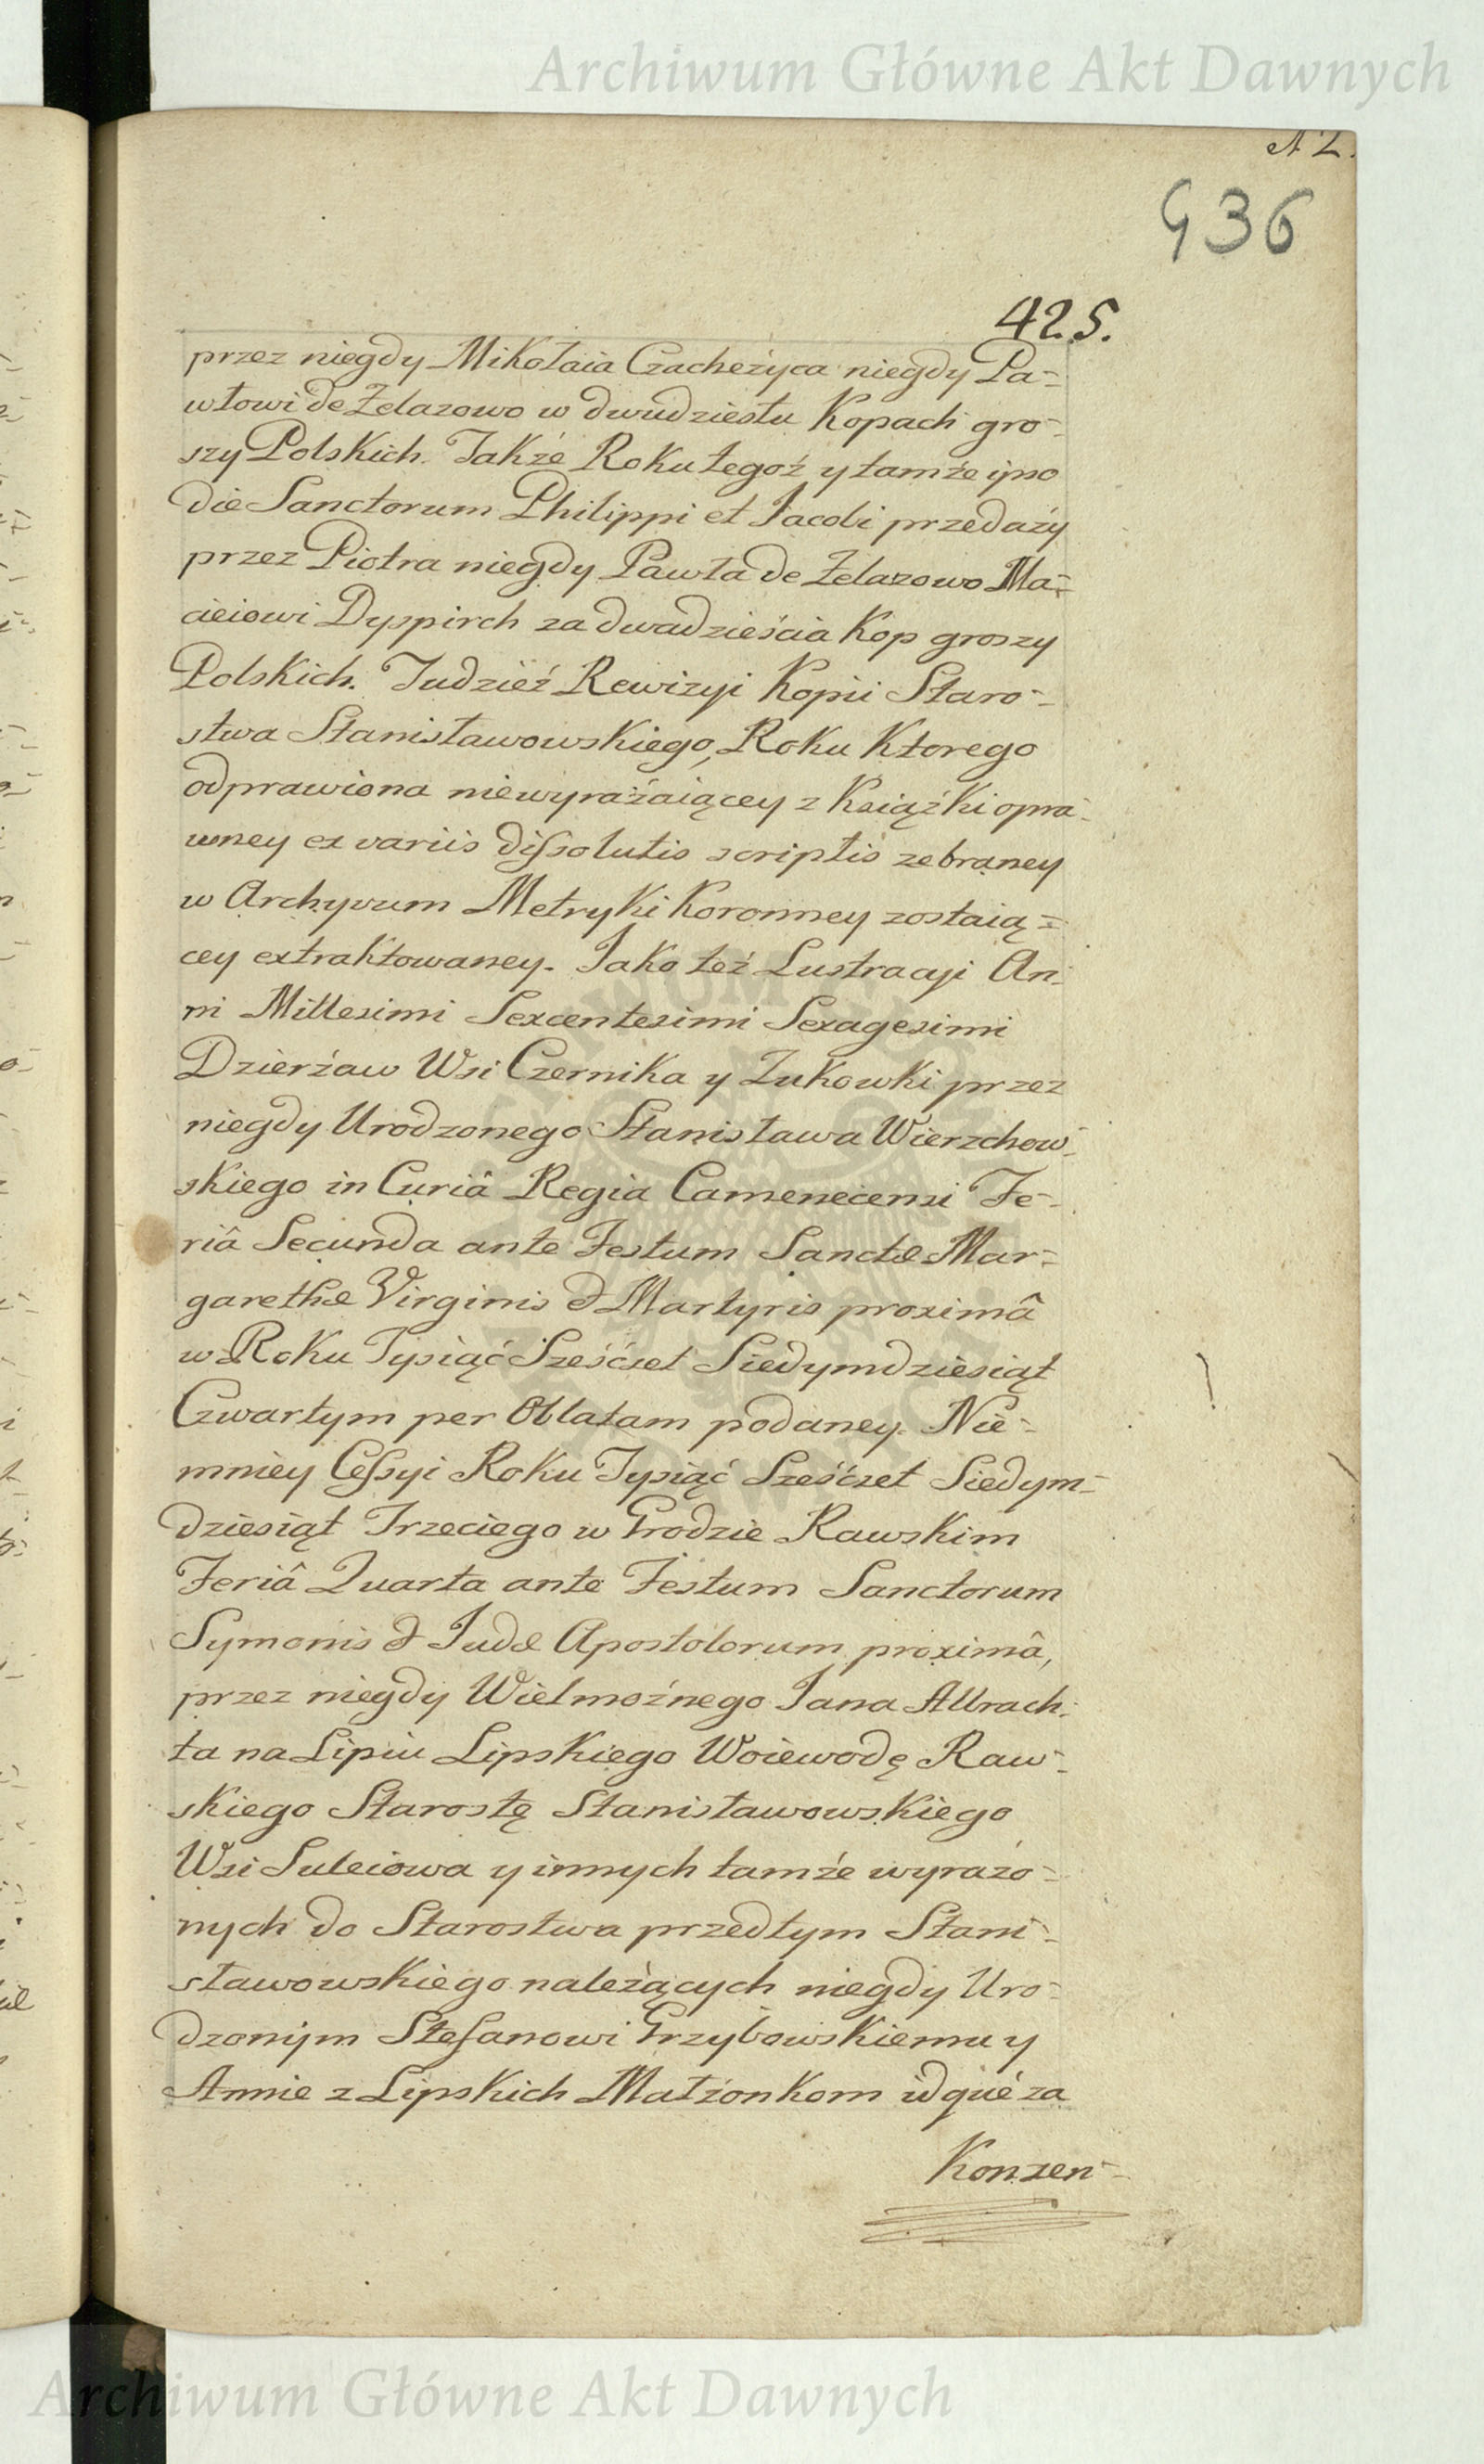 Archiwum Główne Akt Dawnych
436
425.
przez niegdy Mikołaia Czacheżyca niegdy Pa=
włowi de Żelazowo w dwudziestu Kopach gro=
szy Polskich. Także Roku tegoż y tamże ipso
die Sanctorum Philippi et Jacobi przedaży
przez Piotra niegdy Pawła de Żelazowo Ma=
cieiowi Dyspirch za dwadzieścia Kop groszy
Polskich. Tudzież Rewizyi Kopii Staro=
stwa Stanisławowskiego, Roku Ktorego
odprawiona niewyrażaiącey z Książki opra=
wney ex variis dissolutis scriptis zebraney
w Archyvum Metryki Koronney zostaią=
cey extraktowaney. Jako też Lustracyi An=
ni Millesimi Sexcentesimi Sexagesimi
Dzierżaw Wsi Czernika y Żukowki przez
niegdy Urodzonego Stanisława Wierzchow=
skiego in Curiâ Regia Camenecensi Fe=
riâ Secunda ante Festum Sanctæ Mar=
garethæ Virginis & Martyris proximâ
w Roku Tysiąć Sześćset Siedymdziesiąt
Czwartym per Oblatam podaney. Nie=
mniey Cessyi Roku Tysiąć Sześćset Siedym=
dziesiąt Trzeciego w Grodzie Rawskim
Feriâ Quarta ante Festum Sanctorum
Symonis & Judæ Apostolorum proximâ,
przez niegdy Wielmożnego Jana Albrach=
ta na Lipiu Lipskiego Woiewodę Raw=
skiego Starostę Stanisławowskiego
Wsi Suleiowa y innych tamże wyrażo=
nych do Starostwa przedtym Stani=
sławowskiego należących niegdy Uro=
dzonym Stefanowi Grzybowskiemu y
Annie z Lipskich Małżonkom idque za
Konsen=
Archiwum Główne Akt Dawnych